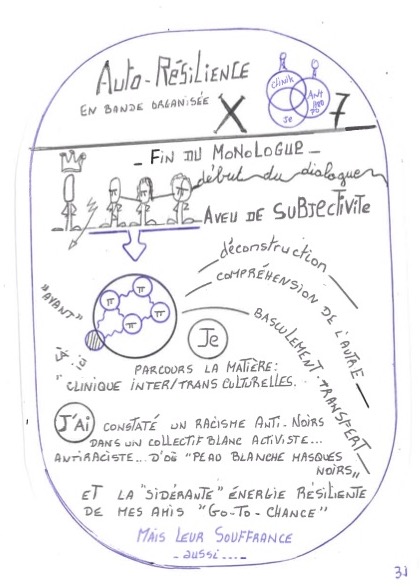 AUTO-RÉSILIENCE
EN BANDE ORGANISÉE X 7
Clinik
ANT
Je
- FIN DU MONOLOGUE -
début du dialogue
AVEU DE SUBJECTIVITE
π π π π
déconstruction
COMPRÉHENSION DE L'AUTRE
BASCULEMENT. TRANSFERT
"AVANT"
π π π π
Je
PARCOURS LA MATIÈRE:
CLINIQUE INTER/TRANS CULTURELLES.
J'Ai CONSTATÉ UN RACISME ANTI-NOIRS
DANS UN COLLECTIF BLANC ACTIVISTE...
ANTIRACISTE... D'OÙ "PEAU BLANCHE MASQUES
NOIRS"
ET LA "SIDÉRANTE" ÉNERGIE RÉSILIENTE
DE MES AMIS "GO-TO-CHANCE"
MAIS LEUR SOUFFRANCE
- aussi.... -